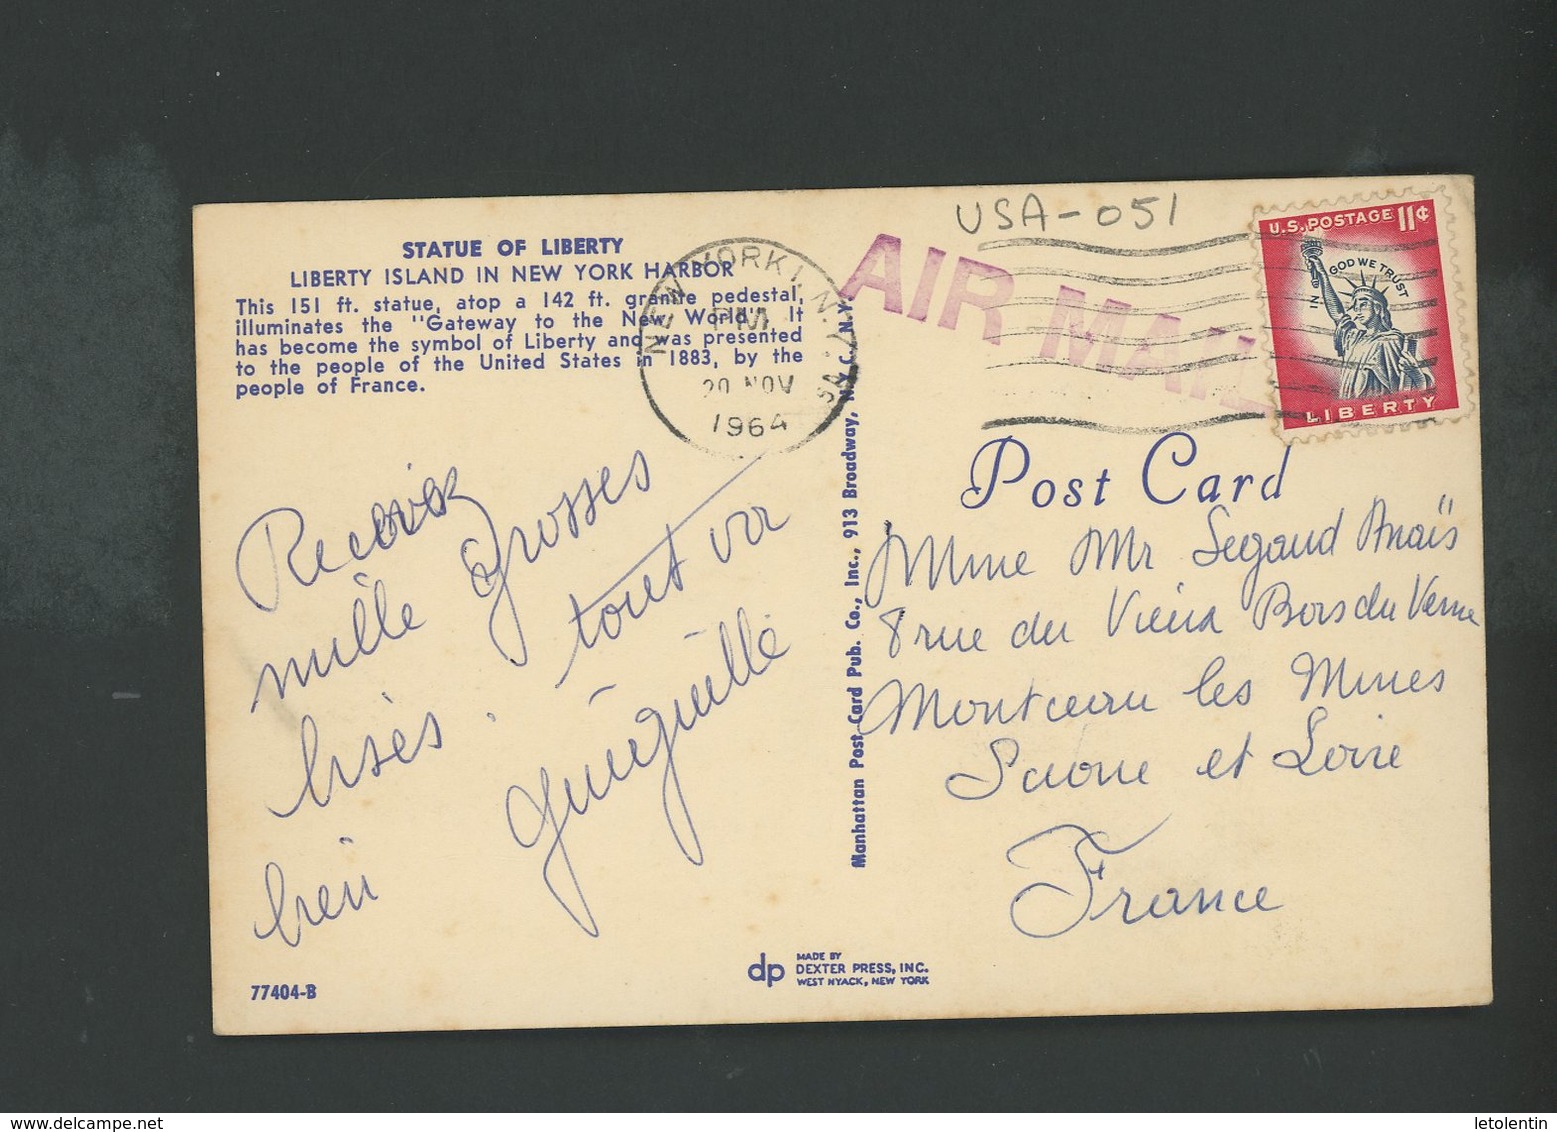 STATUE OF LIBERTY
LIBERTY ISLAND IN NEW YORK HARBOR
This 151 ft. statue, atop a 142 ft. granite pedestal,
illuminates the "Gateway to the New World". It
has become the symbol of Liberty and was presented
to the people of the United States in 1883, by the
people of France.
NEW YORK 1, N.Y.
PM
20 NOV
1964
USA-051
AIR MAIL
U.S. POSTAGE 11¢
IN GOD WE TRUST
LIBERTY
Post Card
Recevez
mille grosses
bises. tout va
bien
Mme Mr Segaud Anaïs
8 rue du Vieux Bois du Verne
Montceau les Mines
Saone et Loire
France
Manhattan Post Card Pub. Co., Inc., 913 Broadway, N.Y.C. N.Y.
dp
MADE BY
DEXTER PRESS, INC.
WEST NYACK, NEW YORK
77404-B
delcampe.net
letolentin